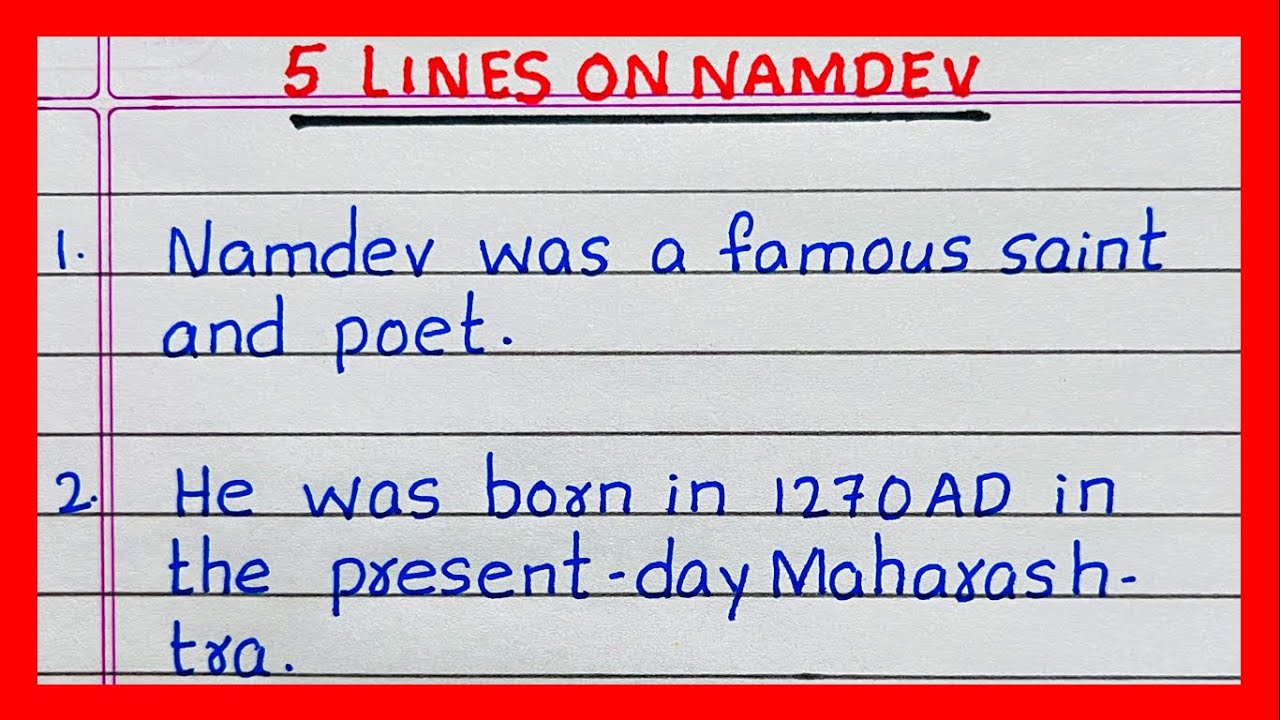 5 LINES ON NAMDEV
1. Namdev was a famous saint
and poet.
2. He was born in 1270 AD in
the present-day Maharash-
tra.